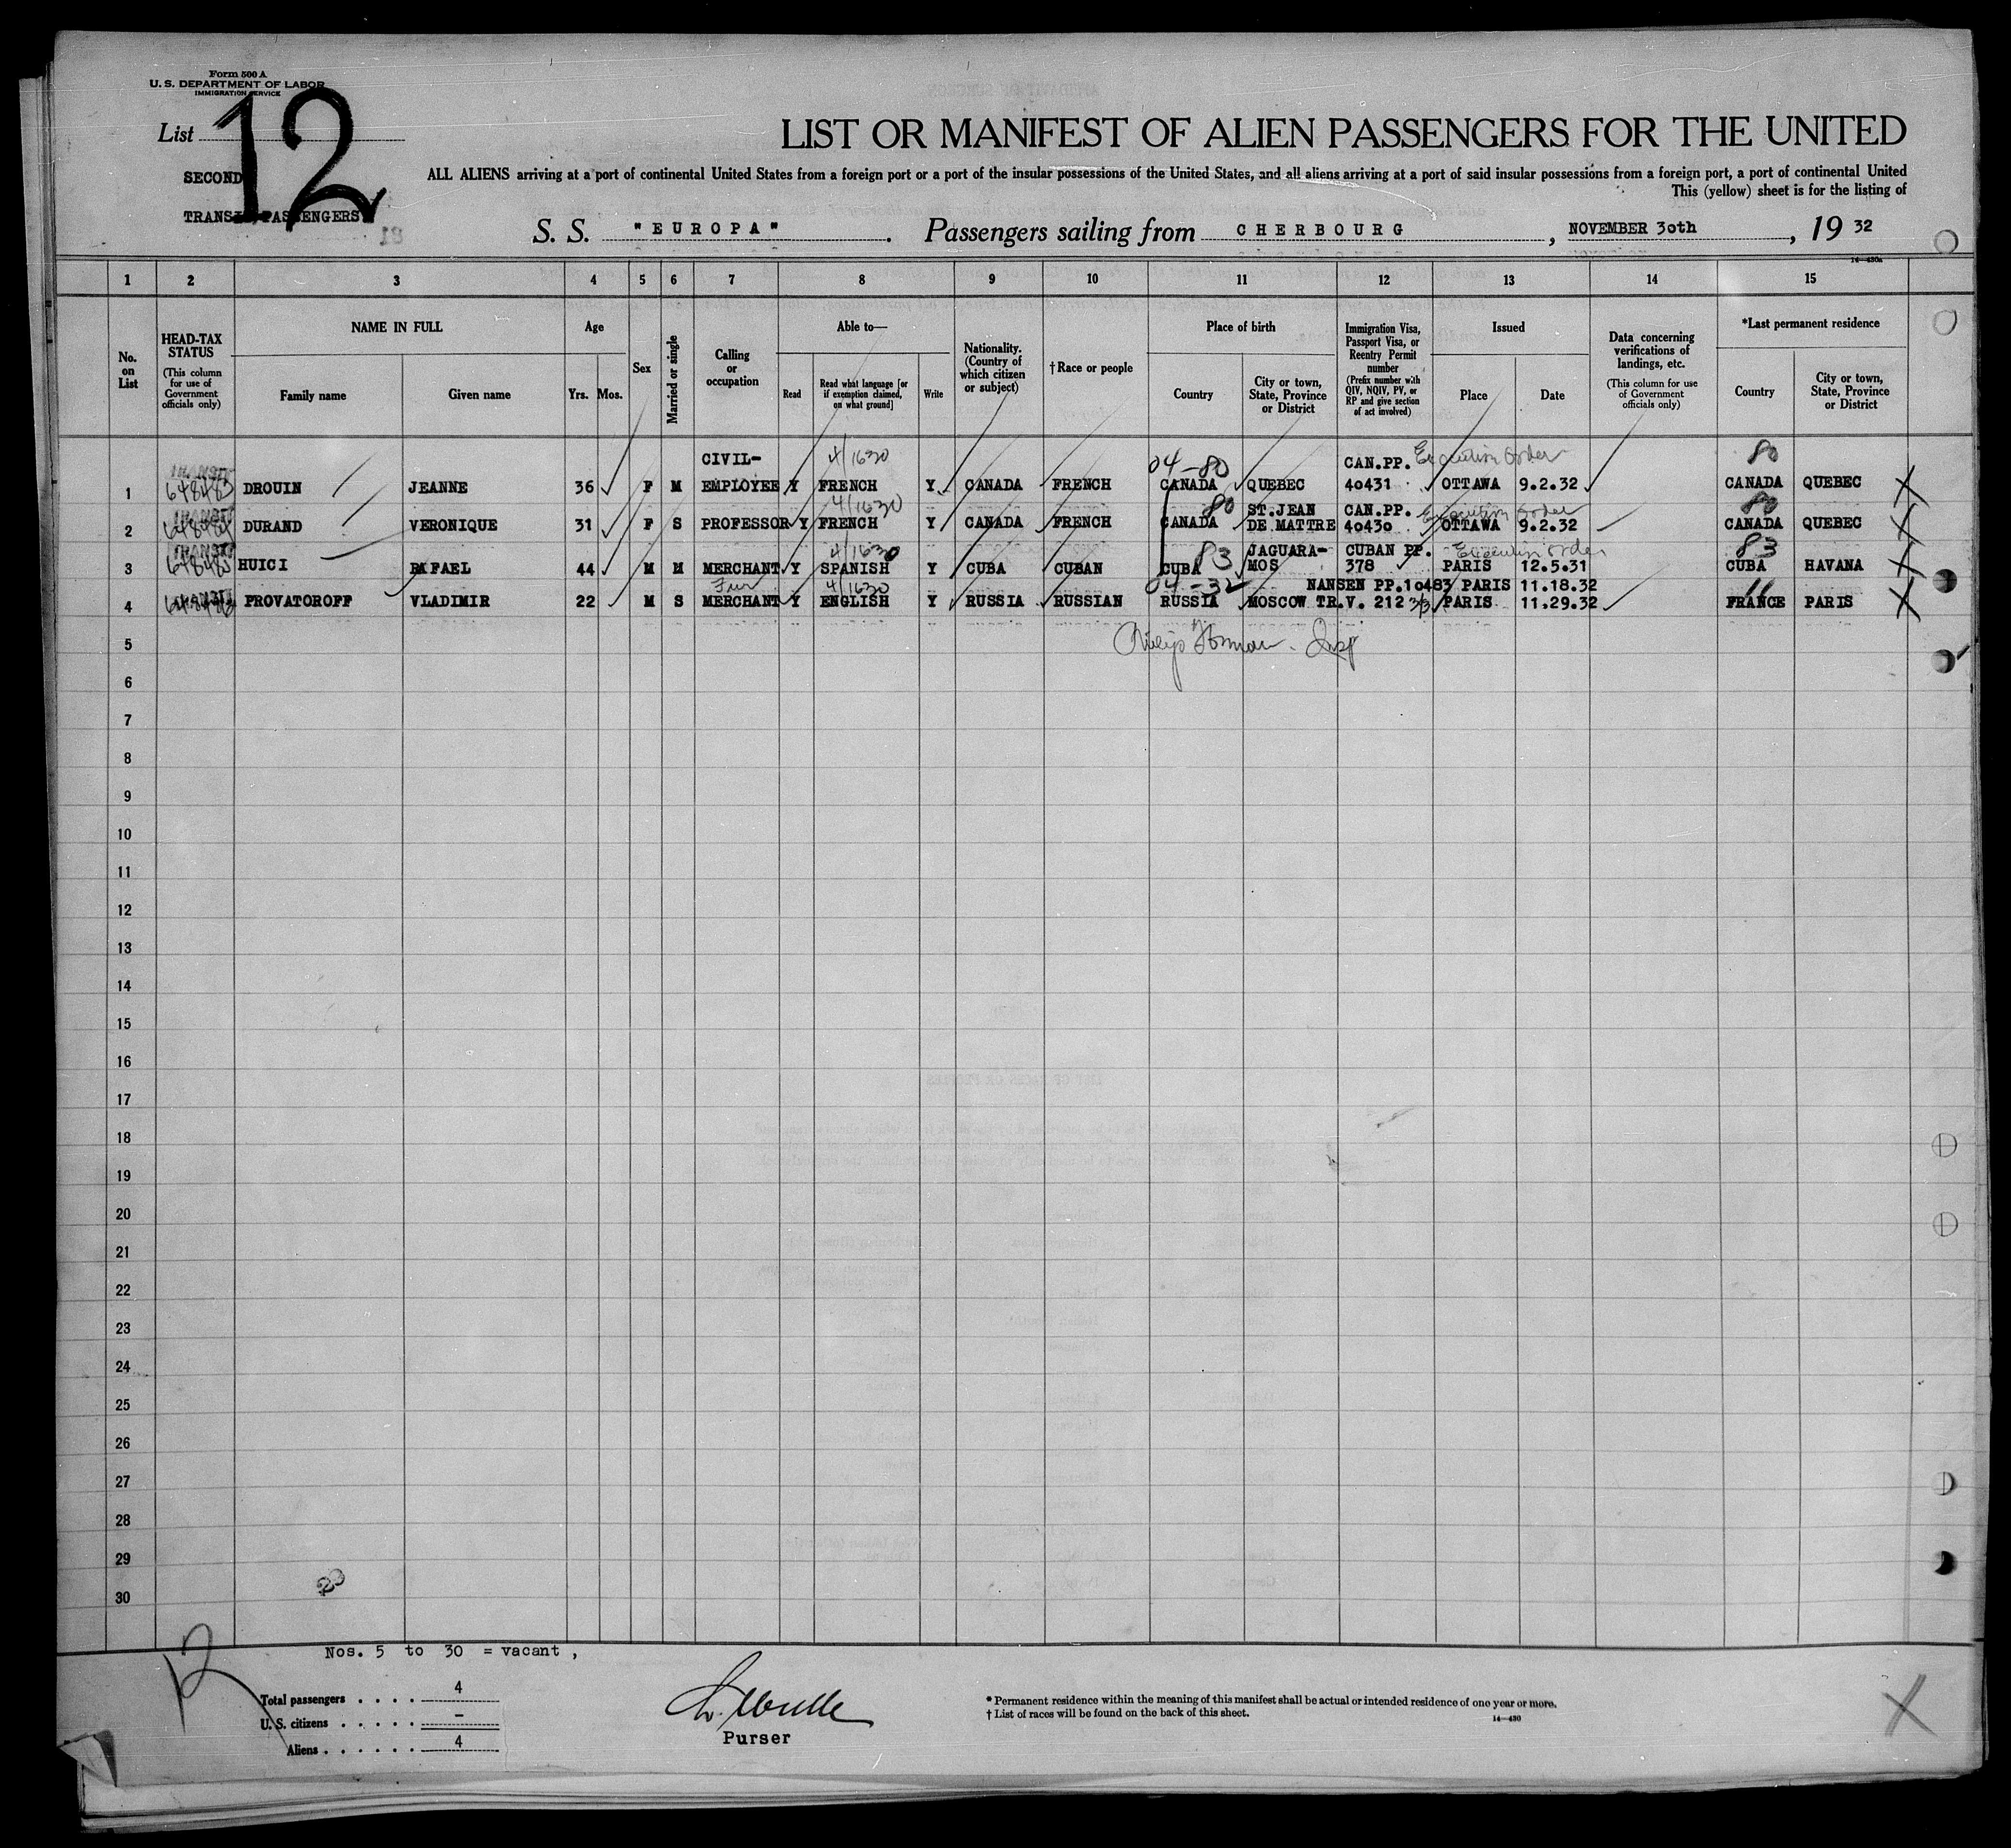 Form 500 A
U. S. DEPARTMENT OF LABOR
IMMIGRATION SERVICE
List 12
SECOND
TRANSIT PASSENGERS
LIST OR MANIFEST OF ALIEN PASSENGERS FOR THE UNITED
ALL ALIENS arriving at a port of continental United States from a foreign port or a port of the insular possessions of the United States, and all aliens arriving at a port of said insular possessions from a foreign port, a port of continental United
This (yellow) sheet is for the listing of
S. S. "EUROPA". Passengers sailing from CHERBOURG, NOVEMBER 30th, 19 32
14—430a
1 2 3 4 5 6 7 8 9 10 11 12 13 14 15
No. on List
HEAD-TAX STATUS (This column for use of Government officials only)
NAME IN FULL
Family name Given name
Age
Yrs. Mos.
Sex
Married or single
Calling or occupation
Able to—
Read Read what language [or if exemption claimed, on what ground] Write
Nationality. (Country of which citizen or subject)
†Race or people
Place of birth
Country City or town, State, Province or District
Immigration Visa, Passport Visa, or Reentry Permit number (Prefix number with QIV, NQIV, PV, or RP and give section of act involved)
Issued
Place Date
Data concerning verifications of landings, etc. (This column for use of Government officials only)
*Last permanent residence
Country City or town, State, Province or District
TRANSIT CIVIL- 4/1630 04-80 CAN.PP. Executive Order 80
1 648483 DROUIN JEANNE 36 F M EMPLOYEE Y FRENCH Y CANADA FRENCH CANADA QUEBEC 40431 OTTAWA 9.2.32 CANADA QUEBEC X
TRANSIT 4/1630 80 ST.JEAN CAN.PP. Executive Order 80
2 648484 DURAND VERONIQUE 31 F S PROFESSOR Y FRENCH Y CANADA FRENCH CANADA DE MATTRE 40430 OTTAWA 9.2.32 CANADA QUEBEC X
TRANSIT 4/1630 83 JAGUARA- CUBAN PP. Executive order 83
3 648485 HUICI RAFAEL 44 M M MERCHANT Y SPANISH Y CUBA CUBAN CUBA MOS 378 PARIS 12.5.31 CUBA HAVANA X
TRANSIT Fur 4/1630 04-32 NANSEN PP.10483 PARIS 11.18.32 11
4 PROVATOROFF VLADIMIR 22 M S MERCHANT Y ENGLISH Y RUSSIA RUSSIAN RUSSIA MOSCOW TR.V. 212 3/3 PARIS 11.29.32 FRANCE PARIS X
5
6
7
8
9
10
11
12
13
14
15
16
17
18
19
20
21
22
23
24
25
26
27
28
29
30
Nos. 5 to 30 = vacant,
Total passengers . . . . 4
U. S. citizens . . . . . –
Aliens . . . . . . 4
Purser
* Permanent residence within the meaning of this manifest shall be actual or intended residence of one year or more.
† List of races will be found on the back of this sheet.
14—430
X